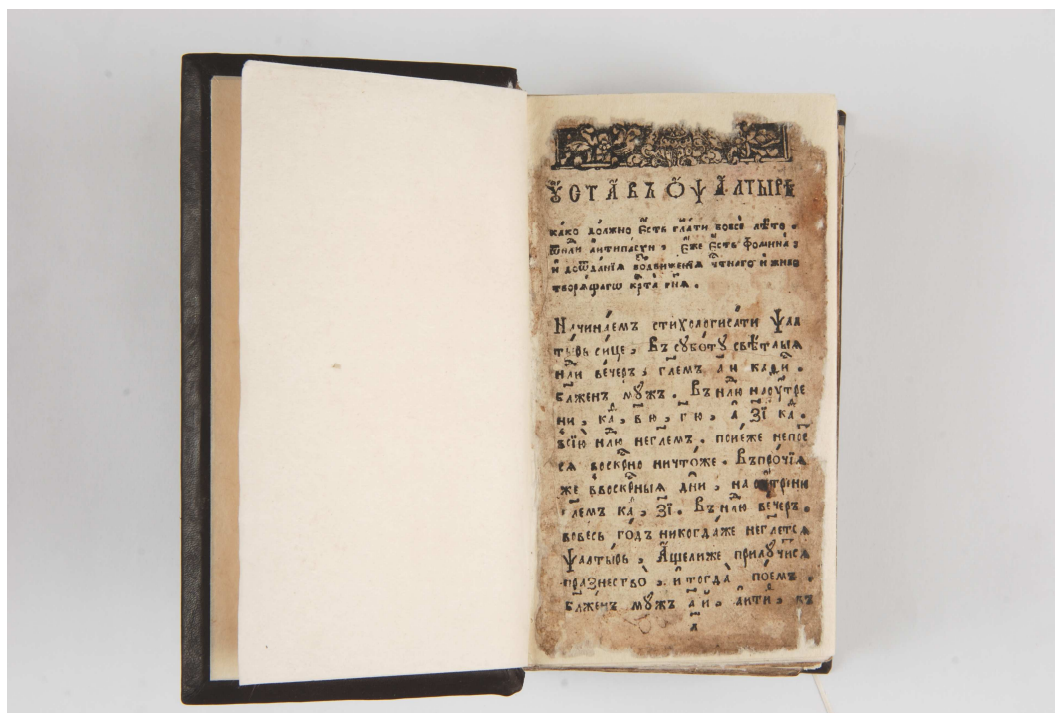 Оу҆ста́въ ѽ ѱалтырѐ
ка́ко до́лжно є҆сть гл҃ати вовсѐ лѣ́то .
ѿ нли а҆нтипа́схи , є҆́же є҆́сть ѳомина̀
и҆ до ѿда́нїѧ воздви́женїѧ чт҃на́го и҆ живо
творѧ́щагѡ крⷭ҇та̀ гн҃ѧ .
Начина́емъ стихологиса́ти ѱал
ты́рь си́це , Въ сꙋбо́тꙋ свѣ́тлыѧ
нлⷣи ве́черъ , гл҃емъ а҃ꙋ каѳи .
бл҃же́нъ мꙋ́жъ . Въ нлⷣю наᲂу҆́тре
ни , каⷴ , в҃ю , г҃ю , а҆ з҃ї каⷴ .
всїю̀ нлⷣю негл҃емъ . поне́же непое
сѧ воскрⷭ҇но ничто́же . Въпро́чїѧ
же ввоскрⷭ҇ныѧ дн҃и , на ᲂу҆́трїню
гл҃емъ каⷴ , з҃ї . Въ нлⷣю ве́черъ .
во ве́сь го́дъ никогда́же негл҃етсѧ
ѱалты́рь , А҆́ще ли же прилꙋчи́сѧ
пра́знество , и҆ тогда̀ пое́мъ .
бл҃же́нъ мꙋ́жъ а҃ й , а҆нти , въ
а҃